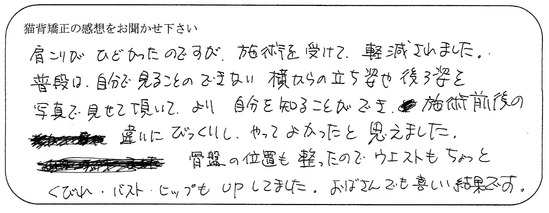 猫背矯正の感想をお聞かせ下さい
肩こりがひどかったのですが、施術を受けて、軽減されました。
普段は、自分で見ることのできない横からの立ち姿や後ろ姿を
写真で見せて頂いて、より自分を知ることができ、施術前後の
違いにびっくりし、やってよかったと思えました。
骨盤の位置も整ったのでウエストもちょっと
くびれ・バスト・ヒップもUPしてました。おばさんでも喜しい結果です。